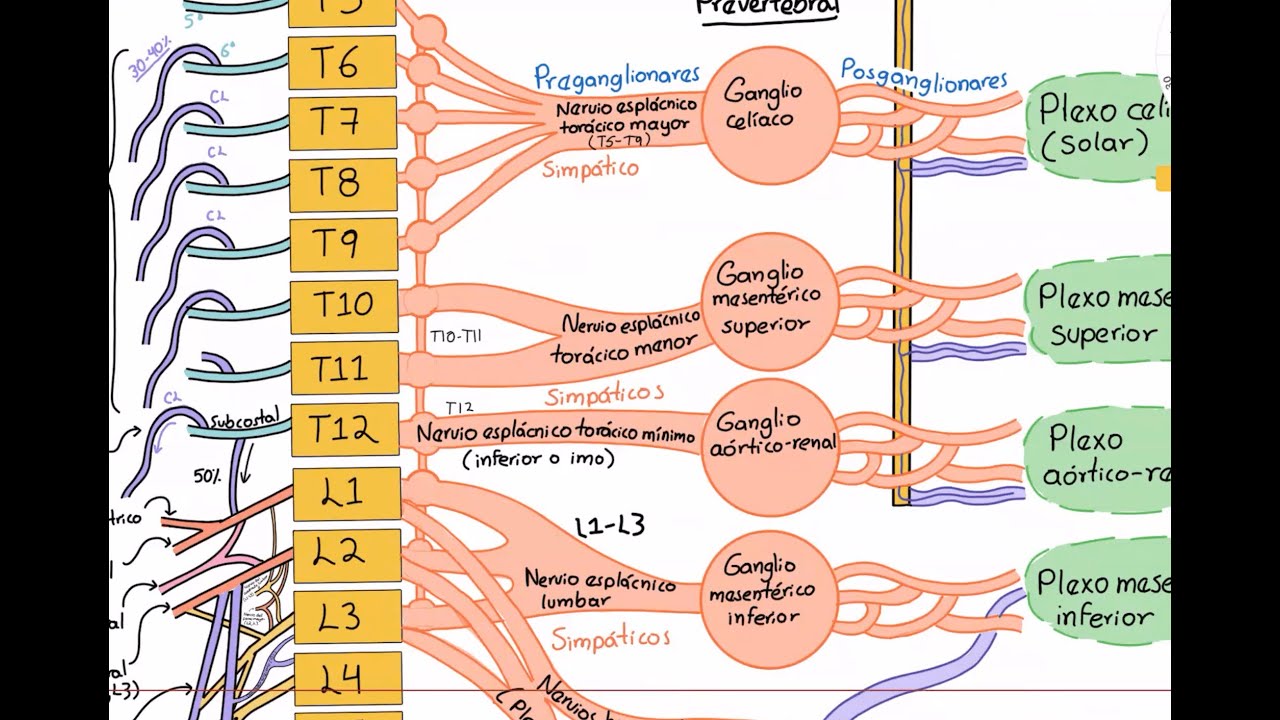 T5
Prevertebral
5°
30-40%
6°
T6
Preganglionares
Ganglio
celíaco
Posganglionares
Plexo celi
(Solar)
CL
T7
Nervio esplácnico
torácico mayor
(T5-T9)
Simpático
CL
T8
CL
T9
T10
T10-T11
Nervio esplácnico
torácico menor
Simpáticos
Ganglio
mesentérico
superior
Plexo mese
Superior
T11
CL
Subcostal
T12
T12
Nervio esplácnico torácico mínimo
(inferior o imo)
Ganglio
aórtico-renal
Plexo
aórtico-re
50%
L1
L1-L3
trico
l
L2
Nervio esplácnico
lumbar
Simpáticos
Ganglio
mesentérico
inferior
Plexo mese
inferior
al
L3
ral
L3)
L4
Nervios
(Ple